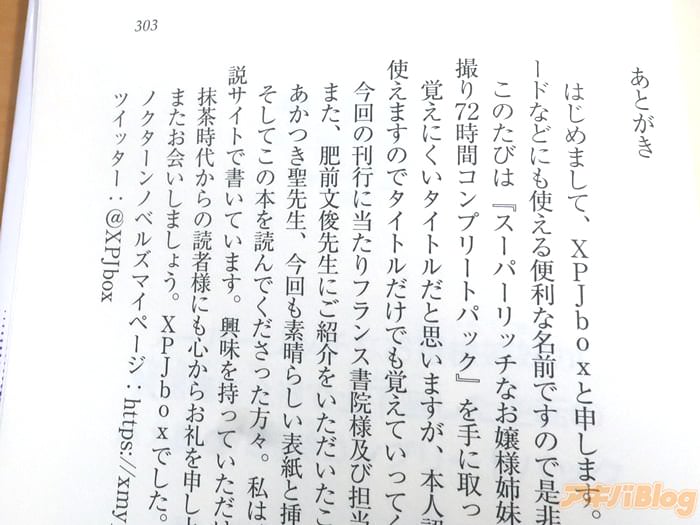 303
あとがき
はじめまして、XPJboxと申します。
ードなどにも使える便利な名前ですので是非
このたびは『スーパーリッチなお嬢様姉妹
撮り72時間コンプリートパック』を手に取っ
覚えにくいタイトルだと思いますが、本人認
使えますのでタイトルだけでも覚えていってく
今回の刊行に当たりフランス書院様及び担当
また、肥前文俊先生にご紹介をいただいたこ
あかつき聖先生、今回も素晴らしい表紙と挿
そしてこの本を読んでくださった方々。私は
説サイトで書いています。興味を持っていただけ
抹茶時代からの読者様にも心からお礼を申し上
またお会いしましょう。XPJboxでした。
ノクターンノベルズマイページ：https://xmy
ツイッター：@XPJbox
アキバBlog